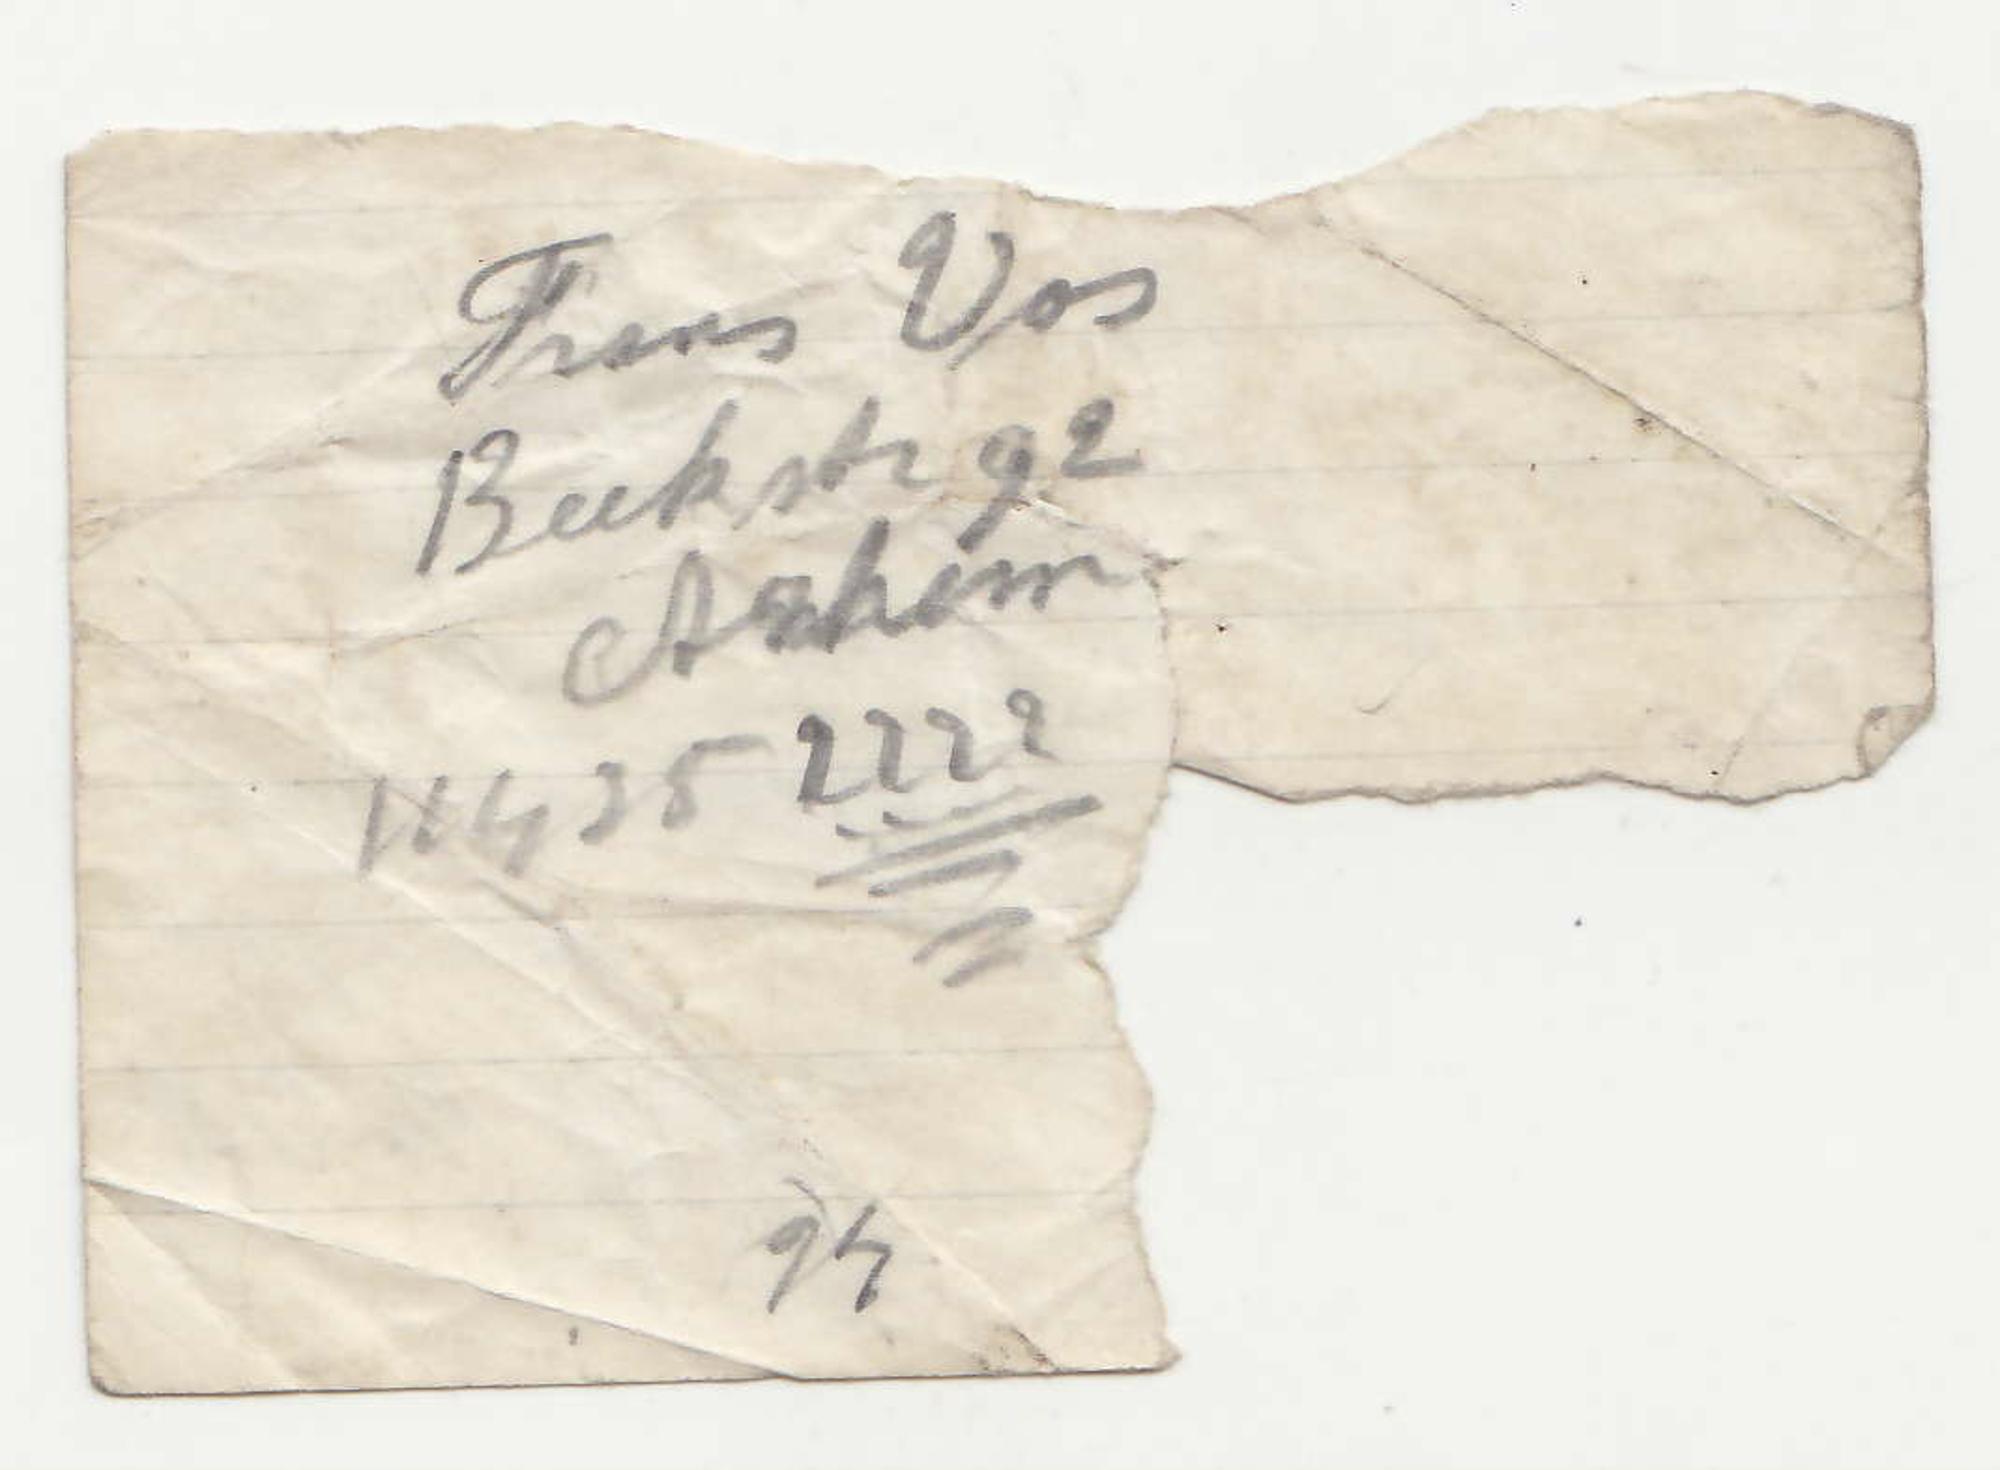 Frans Vos
Beekstr 92
Arnhem
H4 35 2222
94